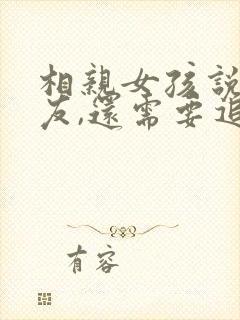 相親女孩說
友,還需要追
有容